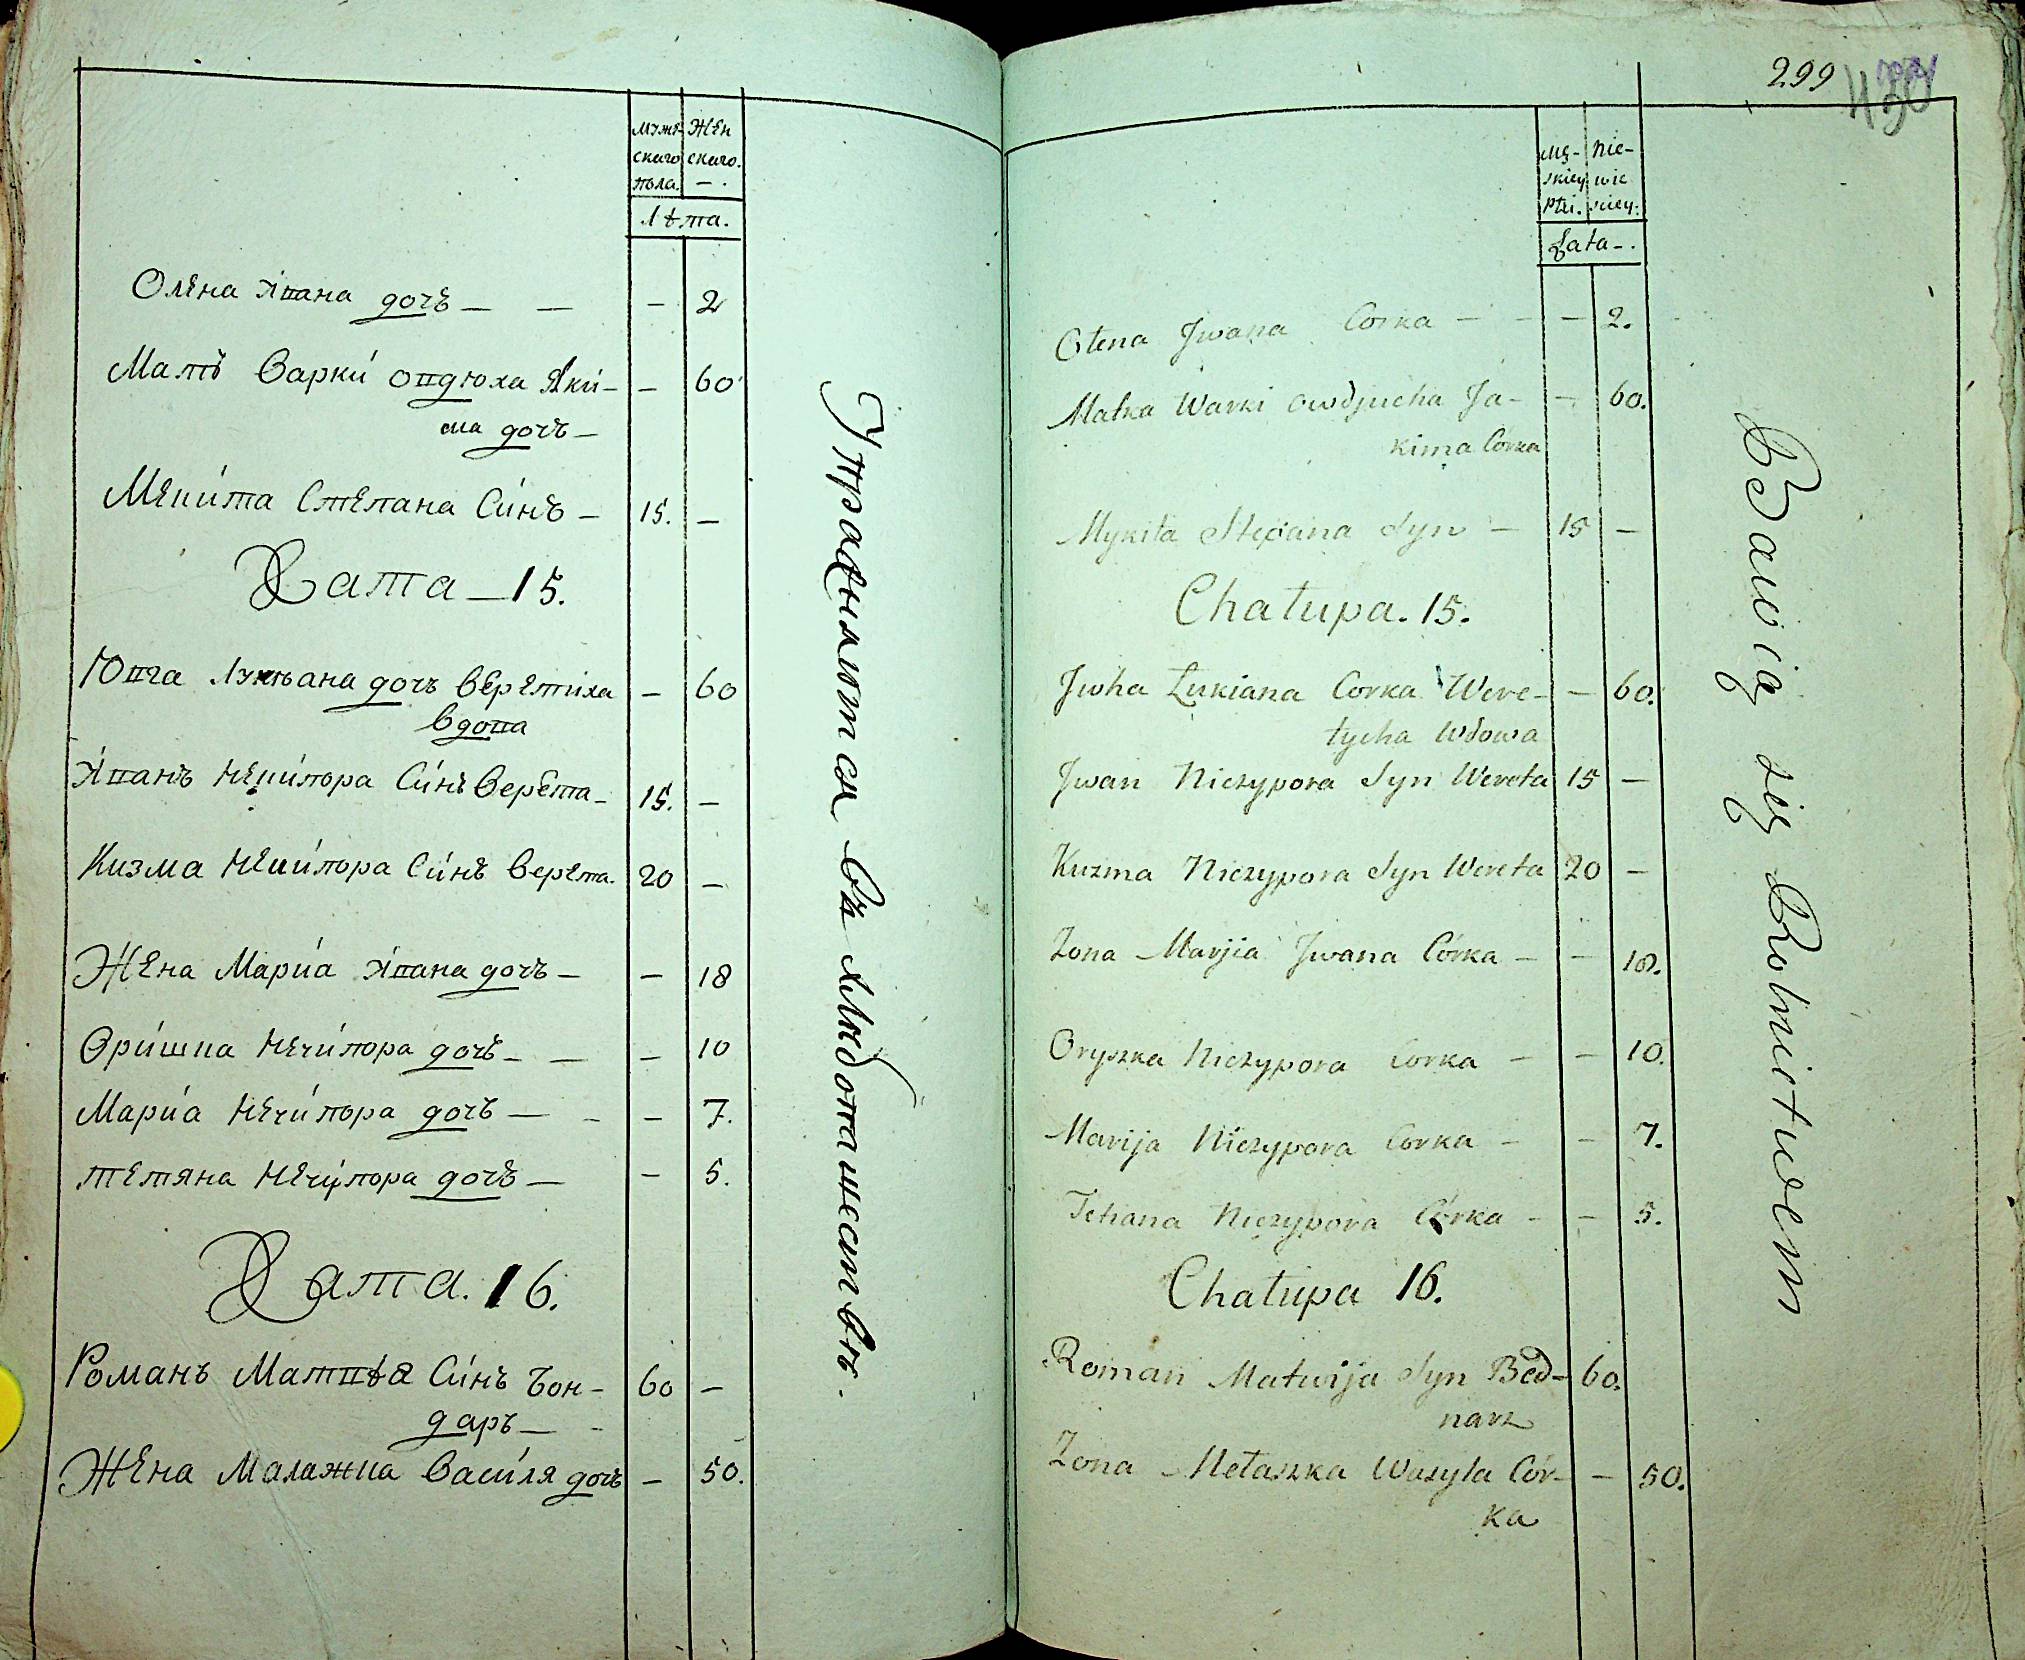 муже- жен
скаго скаго.
пола. — .
лѣта.
Олена Ивана дочь — — — 2
Мать Варки Овдюха Яки- — 60
ма дочь —
Мекита Степана Синъ — 15. —
Хата — 15.
Ювга Лукьана дочь Веретиха — 60
вдова
Иванъ Нечипора Синъ Верета — 15. —
Кизма Нечипора Синъ Верета. 20 —
Жена Мариа Ивана дочь — — 18
Оришка Нечипора дочь — — — 10
Мариа Нечипора дочь — — — 7.
Тетяна Нечипора дочь — — 5.
Хата. 16.
Романъ Матвѣя Синъ Бон- 60 —
даръ —
Жена Малажка Василя дочь — 50.
Упражняются въ хлѣбопашествѣ.
299
Mę- Nie-
skiey wie
Płci. sciey.
Lata — .
Olena Jwana Corka — — — 2.
Matka Warki Owdjucha Ja- — 60.
kima Córka
Mykita Stepana Syn — 15 —
Chałupa. 15.
Jwha Łukiana Corka Were- — 60.
tycha Wdowa
Jwan Niczypora Syn Wereta 15 —
Kuzma Niczypora Syn Wereta 20 —
Zona Marjia Jwana Córka — — 18.
Oryszka Niczypora Corka — — 10.
Marija Niczypora Corka — — 7.
Tetiana Niczypora Córka — — 5.
Chałupa 16.
Roman Matwija Syn Bed- 60.
narz
Zona Mełaszka Wasyla Cór- — 50.
ka
Bawią się Rolnictwem